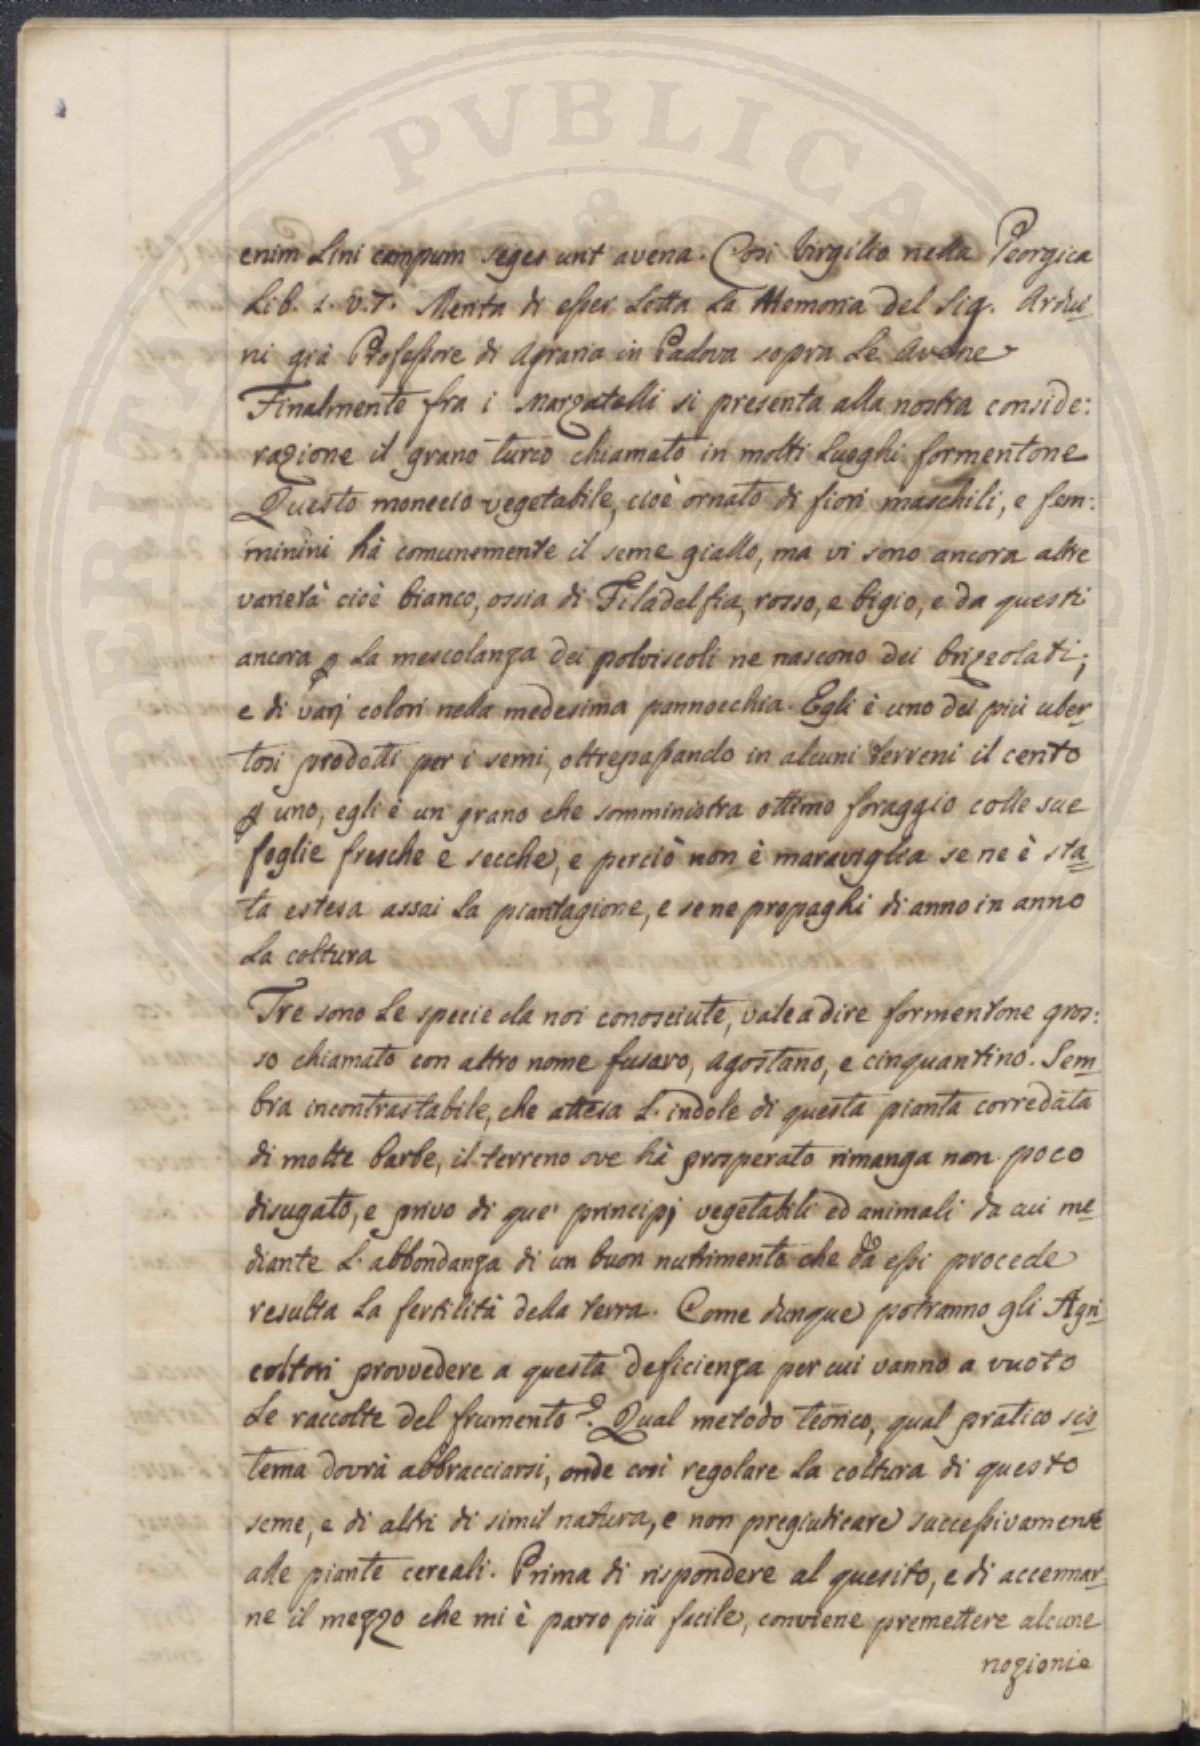 enim Lini campum seges urit avena. Cosi Virgilio nella Georgica
Lib. 1. v. 7. Merita di esser Letta La Memoria del Sig. Ardui-
ni già Professore di Agraria in Padova sopra Le Avene
Finalmente fra i Marzatelli si presenta alla nostra conside:
razione il grano turco chiamato in molti Luoghi formentone
Questo monecio vegetabile, cioè ornato di fiori maschili, e fem:
minini hà comunemente il seme giallo, ma vi sono ancora altre
varietà cioè bianco, ossia di Filadelfia, rosso, e bigio, e da questi
ancora p La mescolanza dei polviscoli ne nascono dei brizeolati;
e di varj colori nella medesima pannocchia. Egli è uno dei più uber-
tosi prodotti per i semi, oltrepassando in alcuni terreni il cento
p uno, egli è un grano che somministra ottimo foraggio colle sue
foglie fresche e secche, e perciò non è maraviglia se ne è sta-
ta estesa assai La piantagione, e se ne propaghi di anno in anno
La coltura
Tre sono Le specie da noi conosciute, vale a dire formentone gros:
so chiamato con altro nome fusaro, agostano, e cinquantino. Sem-
bra incontrastabile, che attesa L'indole di questa pianta corredata
di molte barbe, il terreno ove hà prosperato rimanga non poco
disugato, e privo di que' principj vegetabili ed animali da cui me-
diante L'abbondanza di un buon nutrimento che da essi procede
resulta La fertilità della terra. Come dunque potranno gli Agri-
coltori provvedere a questa deficienza per cui vanno a vuoto
Le raccolte del frumento? Qual metodo teorico, qual pratico sis-
tema dovrà abbracciarsi, onde così regolare La coltura di questo
seme, e di altri di simil natura, e non pregiudicare successivamente
alle piante cereali. Prima di rispondere al quesito, e di accennar-
ne il mezzo che mi è parso più facile, conviene premettere alcune
nozioni
PERITALI PVBLICA